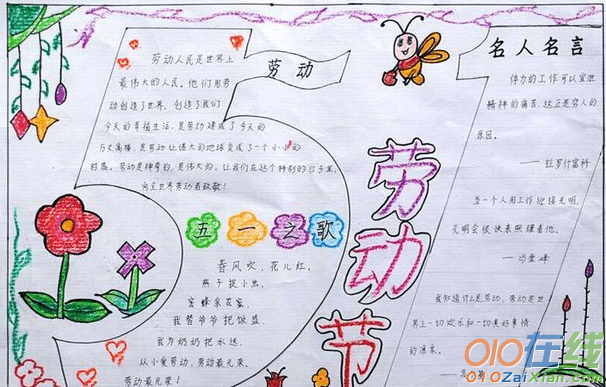 劳动
劳动人民是世界上
最伟大的人民。他们用劳
动创造了世界,创造了我们
今天的幸福生活,是劳动建成了今天的
万丈高楼,是劳动让偌大的地球变成了一个小小的
村落。劳动是神奇的,是伟大的,让我们在这个特别的日子里,
向全世界劳动者致敬!
五一之歌
春风吹,花儿红,
燕子捉小虫,
蜜蜂采花蜜,
我替爷爷把饭盛,
我为奶奶把水送,
从小爱劳动,劳动最光荣,
劳动最光荣!
劳动节
名人名言
体力的工作可以宣泄
精神的痛苦,这正是穷人的
乐园。
——拉罗什富科
当一个人用工作迎接光明,
光明会很快来照耀着他。
——冯雪峰
我知道什么是劳动,劳动是世
界上一切欢乐和一切美好事情
的源泉。
010在线
010ZaiXian.com